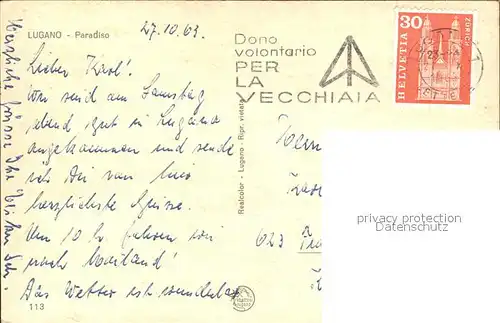 LUGANO - Paradiso
27.10.63.
Lieber Karl!
Wir sind am Samstag
abend gut in Lugano
angekommen und sende
ich Dir von hier
herzlichste Grüsse.
Um 10 h. fahren wir
nach Mailand!
Das Wetter ist wunderbar
113
Herzliche Grüsse Ihr
Realcolor - Lugano - Ripr. vietata
Dono
volontario
PER
LA
VECCHIAIA
30
HELVETIA
ZÜRICH
Herrn
623
privacy protection
Datenschutz